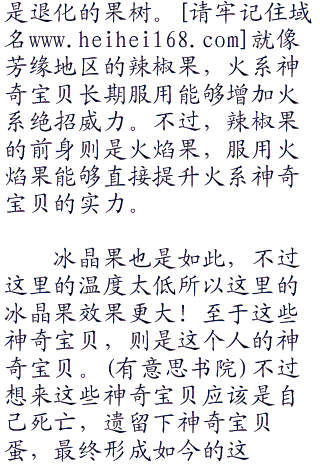 是退化的果树。[请牢记住域
名www.heihei168.com]就像
芳缘地区的辣椒果，火系神
奇宝贝长期服用能够增加火
系绝招威力。不过，辣椒果
的前身则是火焰果，服用火
焰果能够直接提升火系神奇
宝贝的实力。
冰晶果也是如此，不过
这里的温度太低所以这里的
冰晶果效果更大！至于这些
神奇宝贝，则是这个人的神
奇宝贝。(有意思书院)不过
想来这些神奇宝贝应该是自
己死亡，遗留下神奇宝贝
蛋，最终形成如今的这